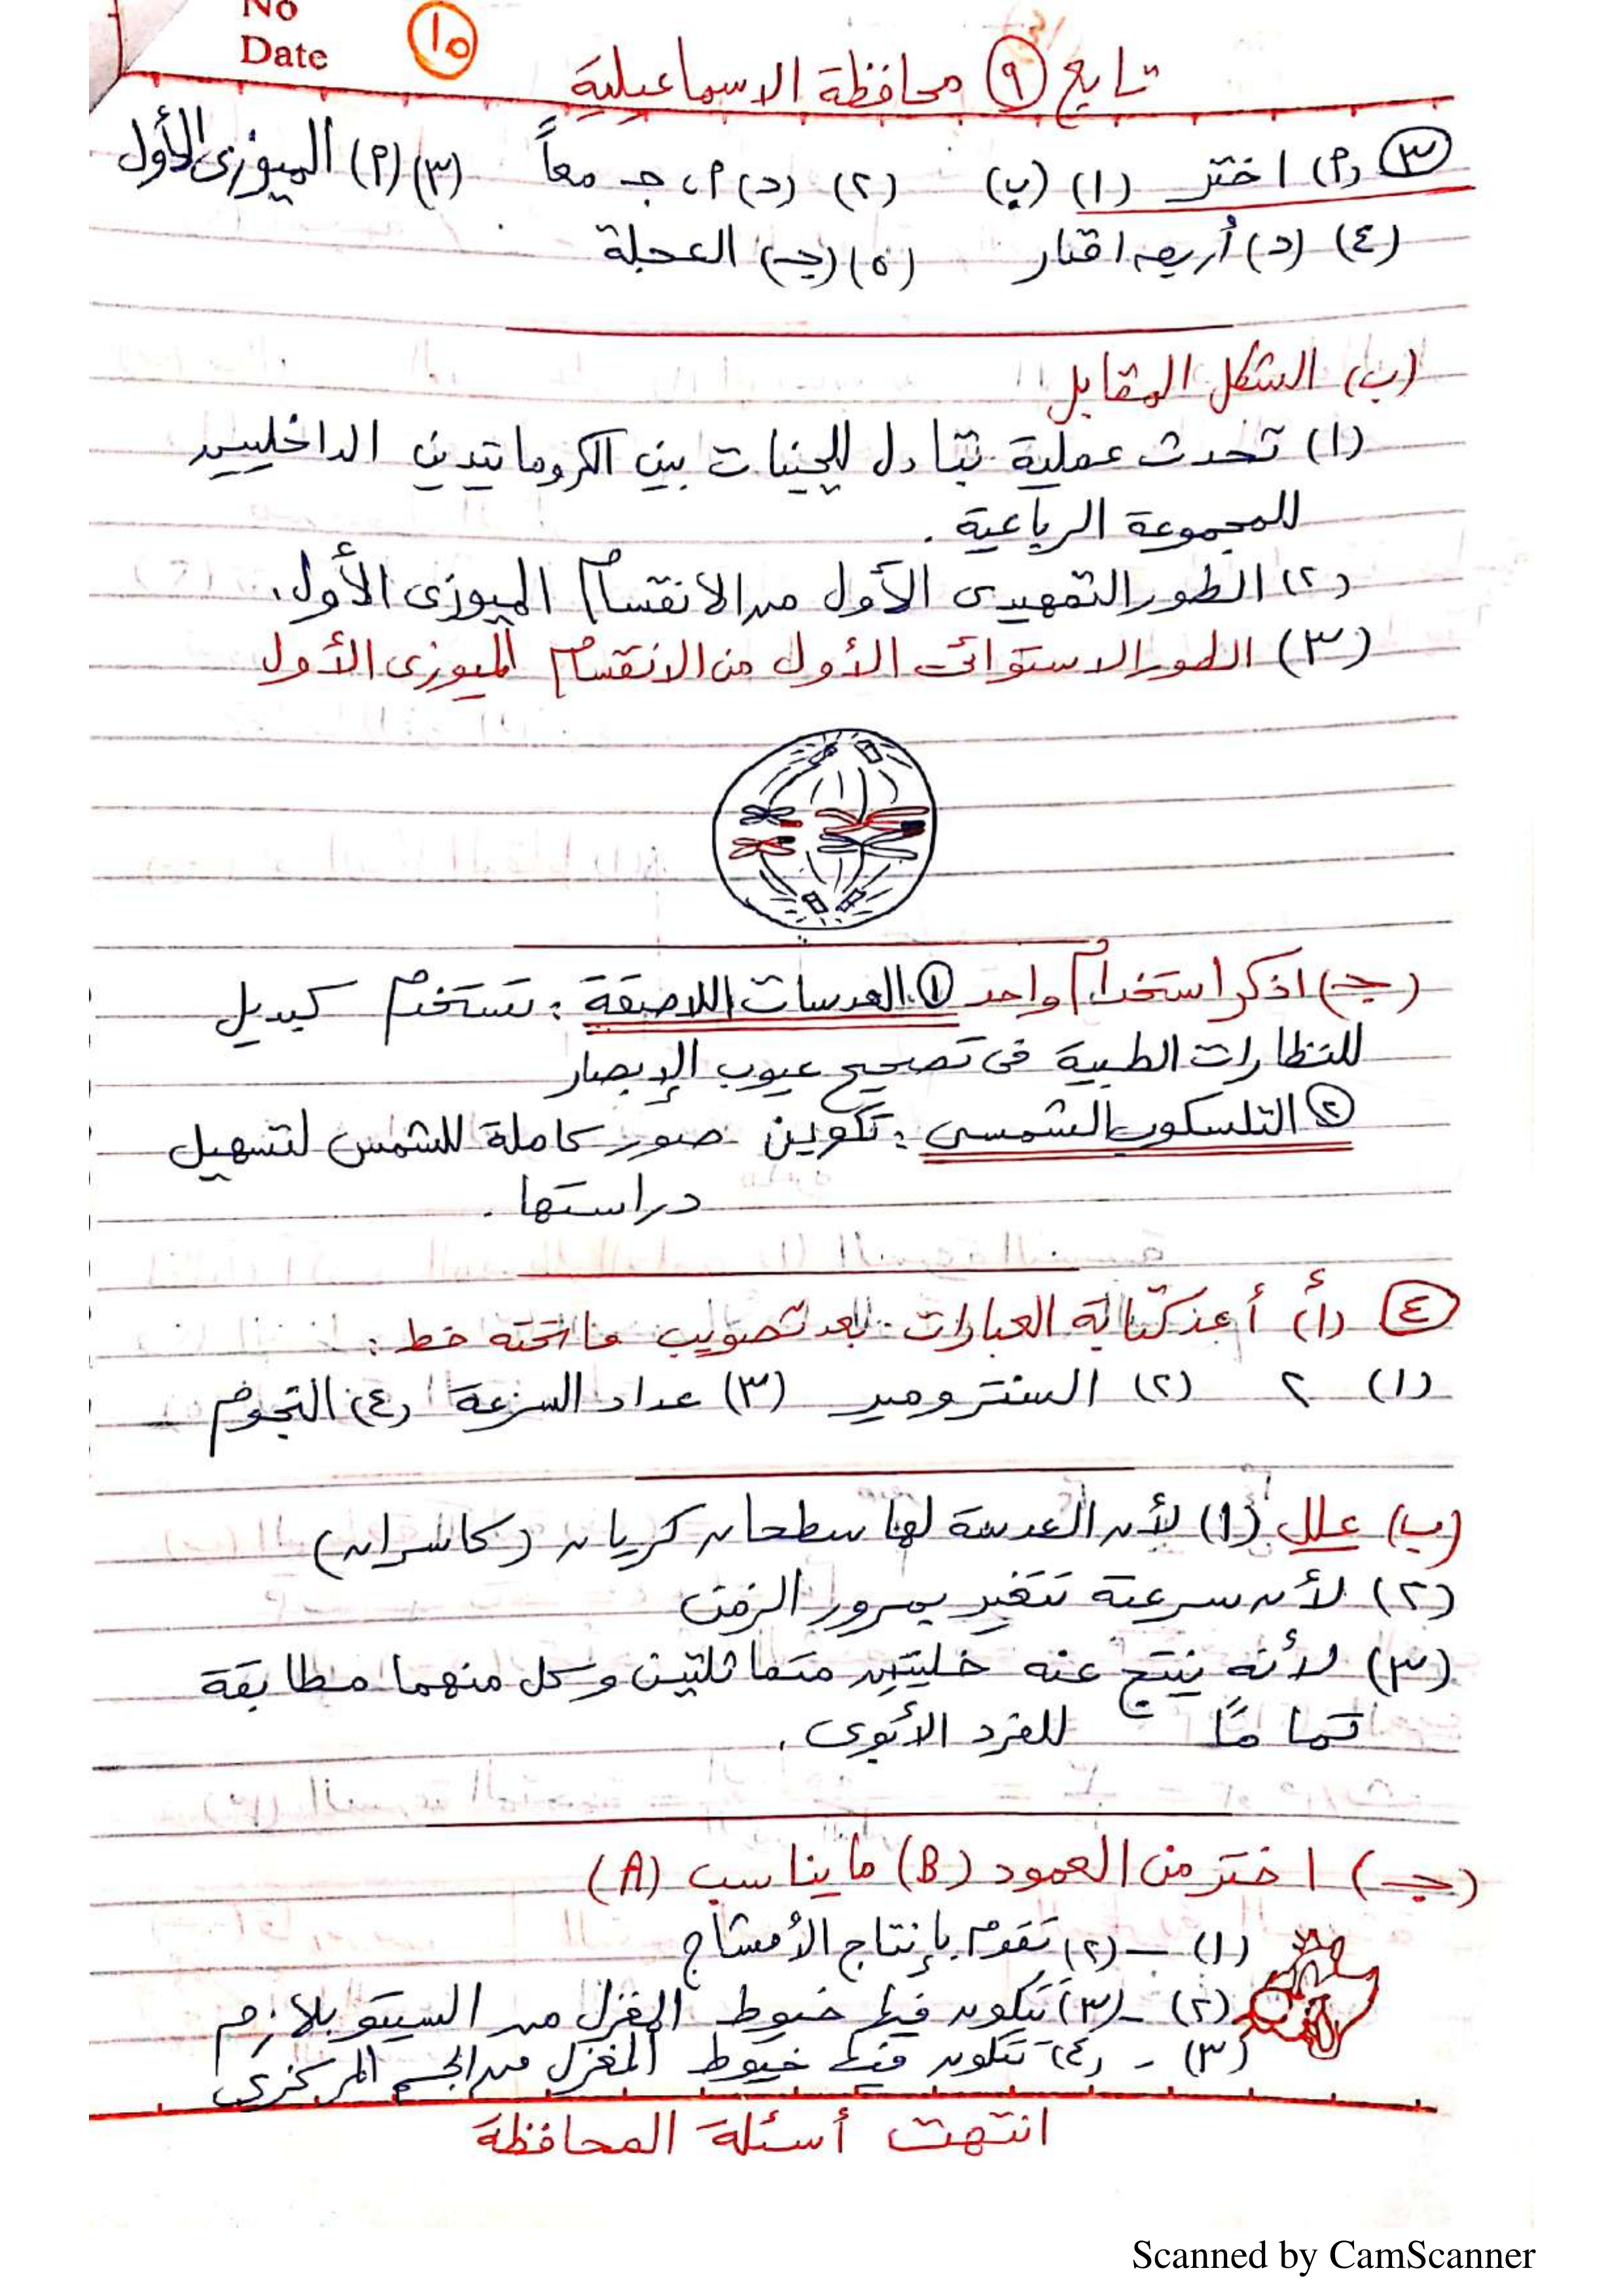 No
Date
١٥
تابع ٩ محافظة الاسماعيلية
٣ (٢) اختر (١) (ب) (٢) (د) ٢، جـ معاً (٣) (٢) الميوزى الأول
(٤) (د) أربعه اقمار (٥) (جـ) العجلة
(ب) الشكل المقابل
(١) تحدث عملية تبادل للجينات بين الكروماتيدين الداخليين
للمجموعة الرباعية .
(٢) الطور التمهيدى الأول من الانقسام الميوزى الأول.
(٣) الطور الاستوائى الأول من الانقسام الميوزى الأول
(جـ) اذكر استخدام واحد ١ العدسات اللاصقة : تستخدم كبديل
للنظارات الطبية فى تصحيح عيوب الإبصار
٢ التلسكوب الشمسى : تكوين صور كاملة للشمس لتسهيل
دراستها .
٤ (أ) أعد كتابة العبارات بعد تصويب ما تحته خط :
(١) ٢ (٢) السنترومير (٣) عداد السرعة (٤) النجوم
(ب) علل (١) لأن العدسة لها سطحان كريان (كاسران)
(٢) لأن سرعته تتغير بمرور الزمن
(٣) لأنه ينتج عنه خليتين متماثلتين وكل منهما مطابقة
تماماً للفرد الأبوى .
(جـ) اختر من العمود (B) ما يناسب (A)
(١) – (٢) تقوم بإنتاج الأمشاج
(٢) – (٣) تتكون فيها خيوط المغزل من السيتوبلازم
(٣) – (٤) تتكون فيها خيوط المغزل من الجسم المركزى
انتهت أسئلة المحافظة
Scanned by CamScanner